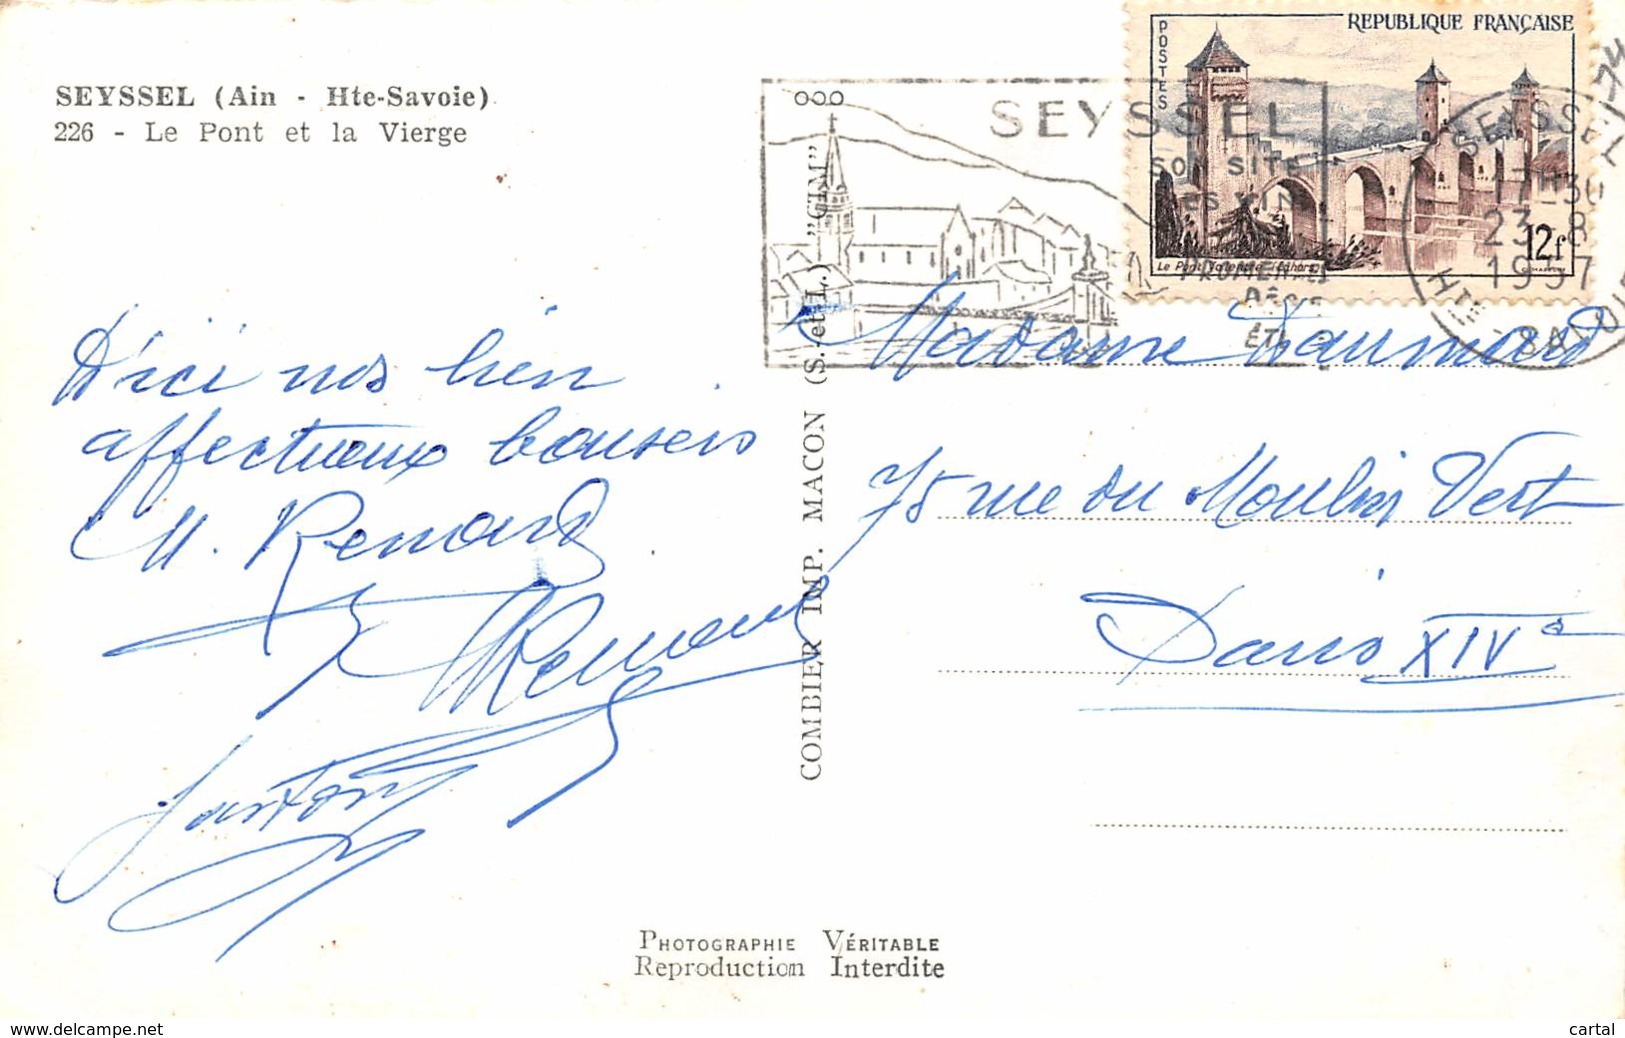 SEYSSEL (Ain - Hte-Savoie)
226 - Le Pont et la Vierge
D'ici nos bien
affectueux baisers
M. Renard
Renard
Gaston
COMBIER IMP. MACON (S. et L.) "CIM"
SEYSSEL
SON SITE
SES VINS
REPUBLIQUE FRANÇAISE
POSTES
Le Pont Valentré (Cahors)
12f
SEYSSEL
17H30
23-8
1957
HTE-SAVOIE
Madame Daumard
75 rue du Moulin Vert
Paris XIVe
PHOTOGRAPHIE VÉRITABLE
Reproduction Interdite
www.delcampe.net
cartal